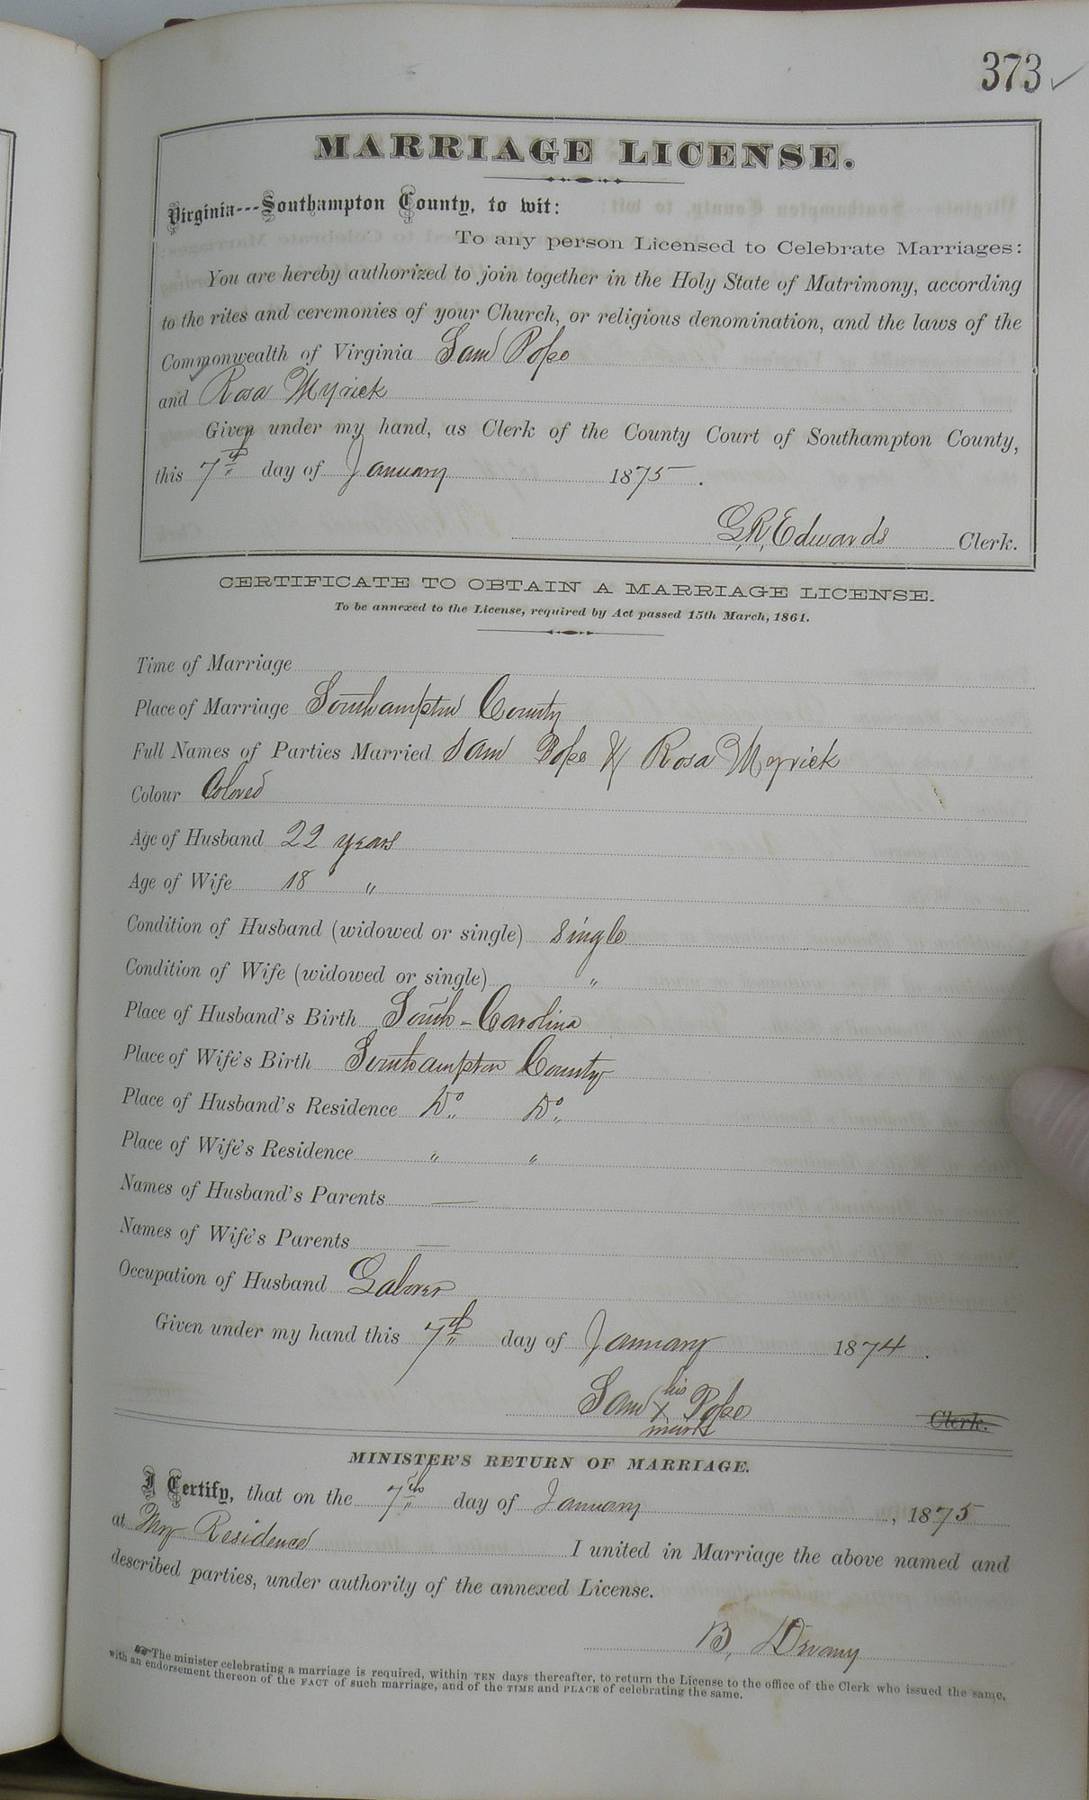 373
MARRIAGE LICENSE.
Virginia---Southampton County, to wit:
To any person Licensed to Celebrate Marriages:
You are hereby authorized to join together in the Holy State of Matrimony, according
to the rites and ceremonies of your Church, or religious denomination, and the laws of the
Commonwealth of Virginia Sam Pope
and Rosa Myrick
Given under my hand, as Clerk of the County Court of Southampton County,
this 7th day of January 1875.
G.R. Edwards Clerk.
CERTIFICATE TO OBTAIN A MARRIAGE LICENSE.
To be annexed to the License, required by Act passed 15th March, 1861.
Time of Marriage
Place of Marriage Southampton County
Full Names of Parties Married Sam Pope & Rosa Myrick
Colour Colored
Age of Husband 22 years
Age of Wife 18 "
Condition of Husband (widowed or single) single
Condition of Wife (widowed or single) "
Place of Husband's Birth South-Carolina
Place of Wife's Birth Southampton County
Place of Husband's Residence Do Do
Place of Wife's Residence " "
Names of Husband's Parents —
Names of Wife's Parents —
Occupation of Husband Laborer
Given under my hand this 7th day of January 1874.
Sam his X mark Pope Clerk.
MINISTER'S RETURN OF MARRIAGE.
I Certify, that on the 7th day of January, 1875
at My Residence I united in Marriage the above named and
described parties, under authority of the annexed License.
B,
The minister celebrating a marriage is required, within TEN days thereafter, to return the License to the office of the Clerk who issued the same,
with an endorsement thereon of the FACT of such marriage, and of the TIME and PLACE of celebrating the same.